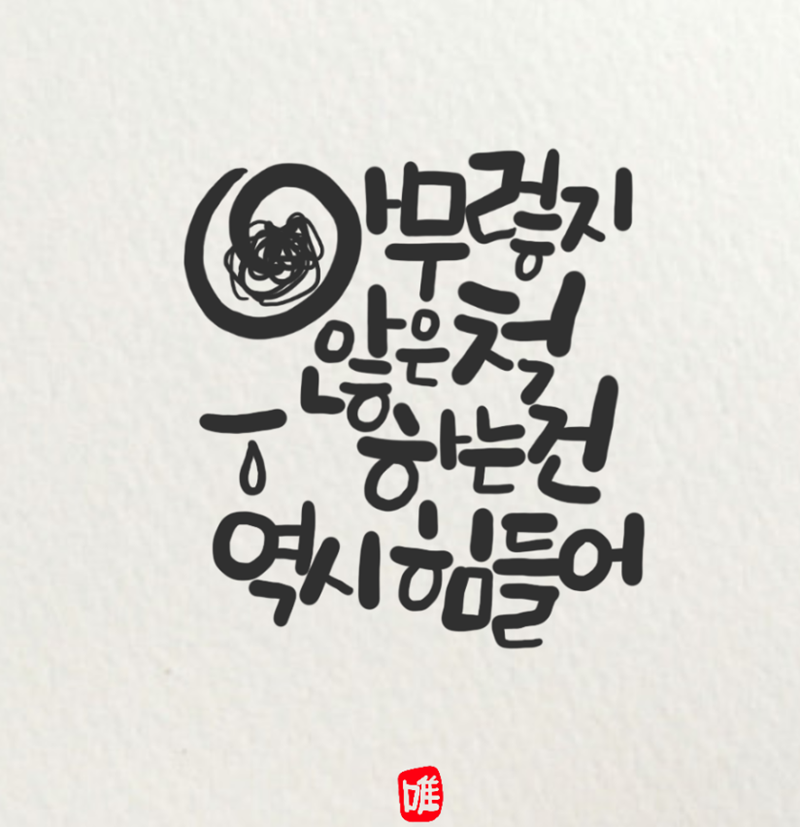 아무렇지
않은 척
하는 건
ㅜ
역시 힘들어
唯